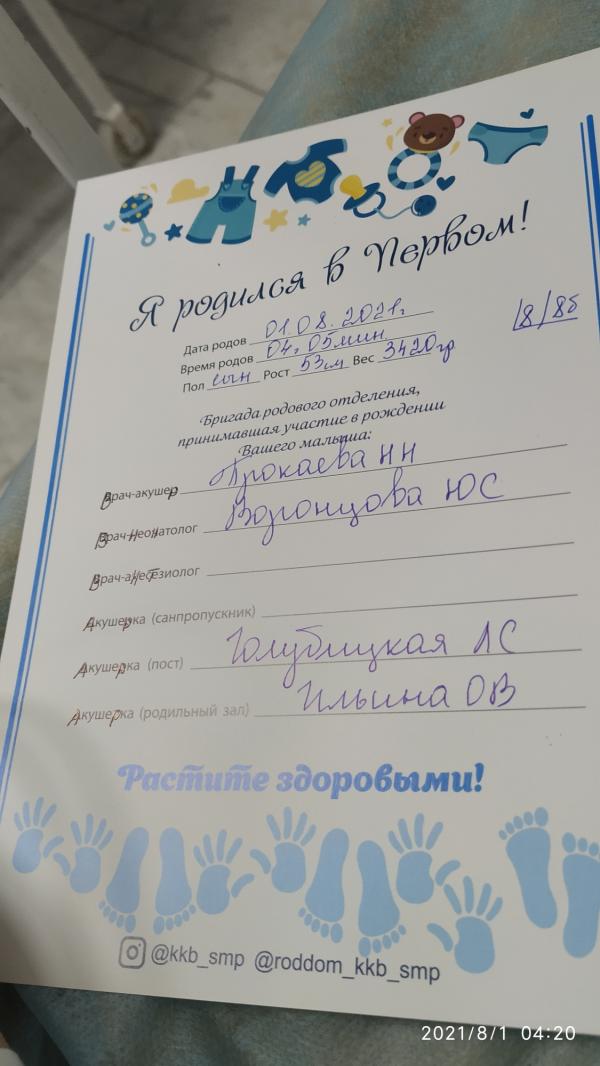 Я родился в Первом!
Дата родов 01.08.2021г.
Время родов 04ч 05мин.
8/8б
Пол сын Рост 53см Вес 3420гр
Бригада родового отделения,
принимавшая участие в рождении
Вашего малыша:
Врач-акушер Прокаева НН
Врач-неонатолог Воронцова ЮС
Врач-анестезиолог
Акушерка (санпропускник)
Акушерка (пост) Голубицкая ЛС
Акушерка (родильный зал) Ильина ОВ
Растите здоровыми!
@kkb_smp @roddom_kkb_smp
2021/8/1 04:20